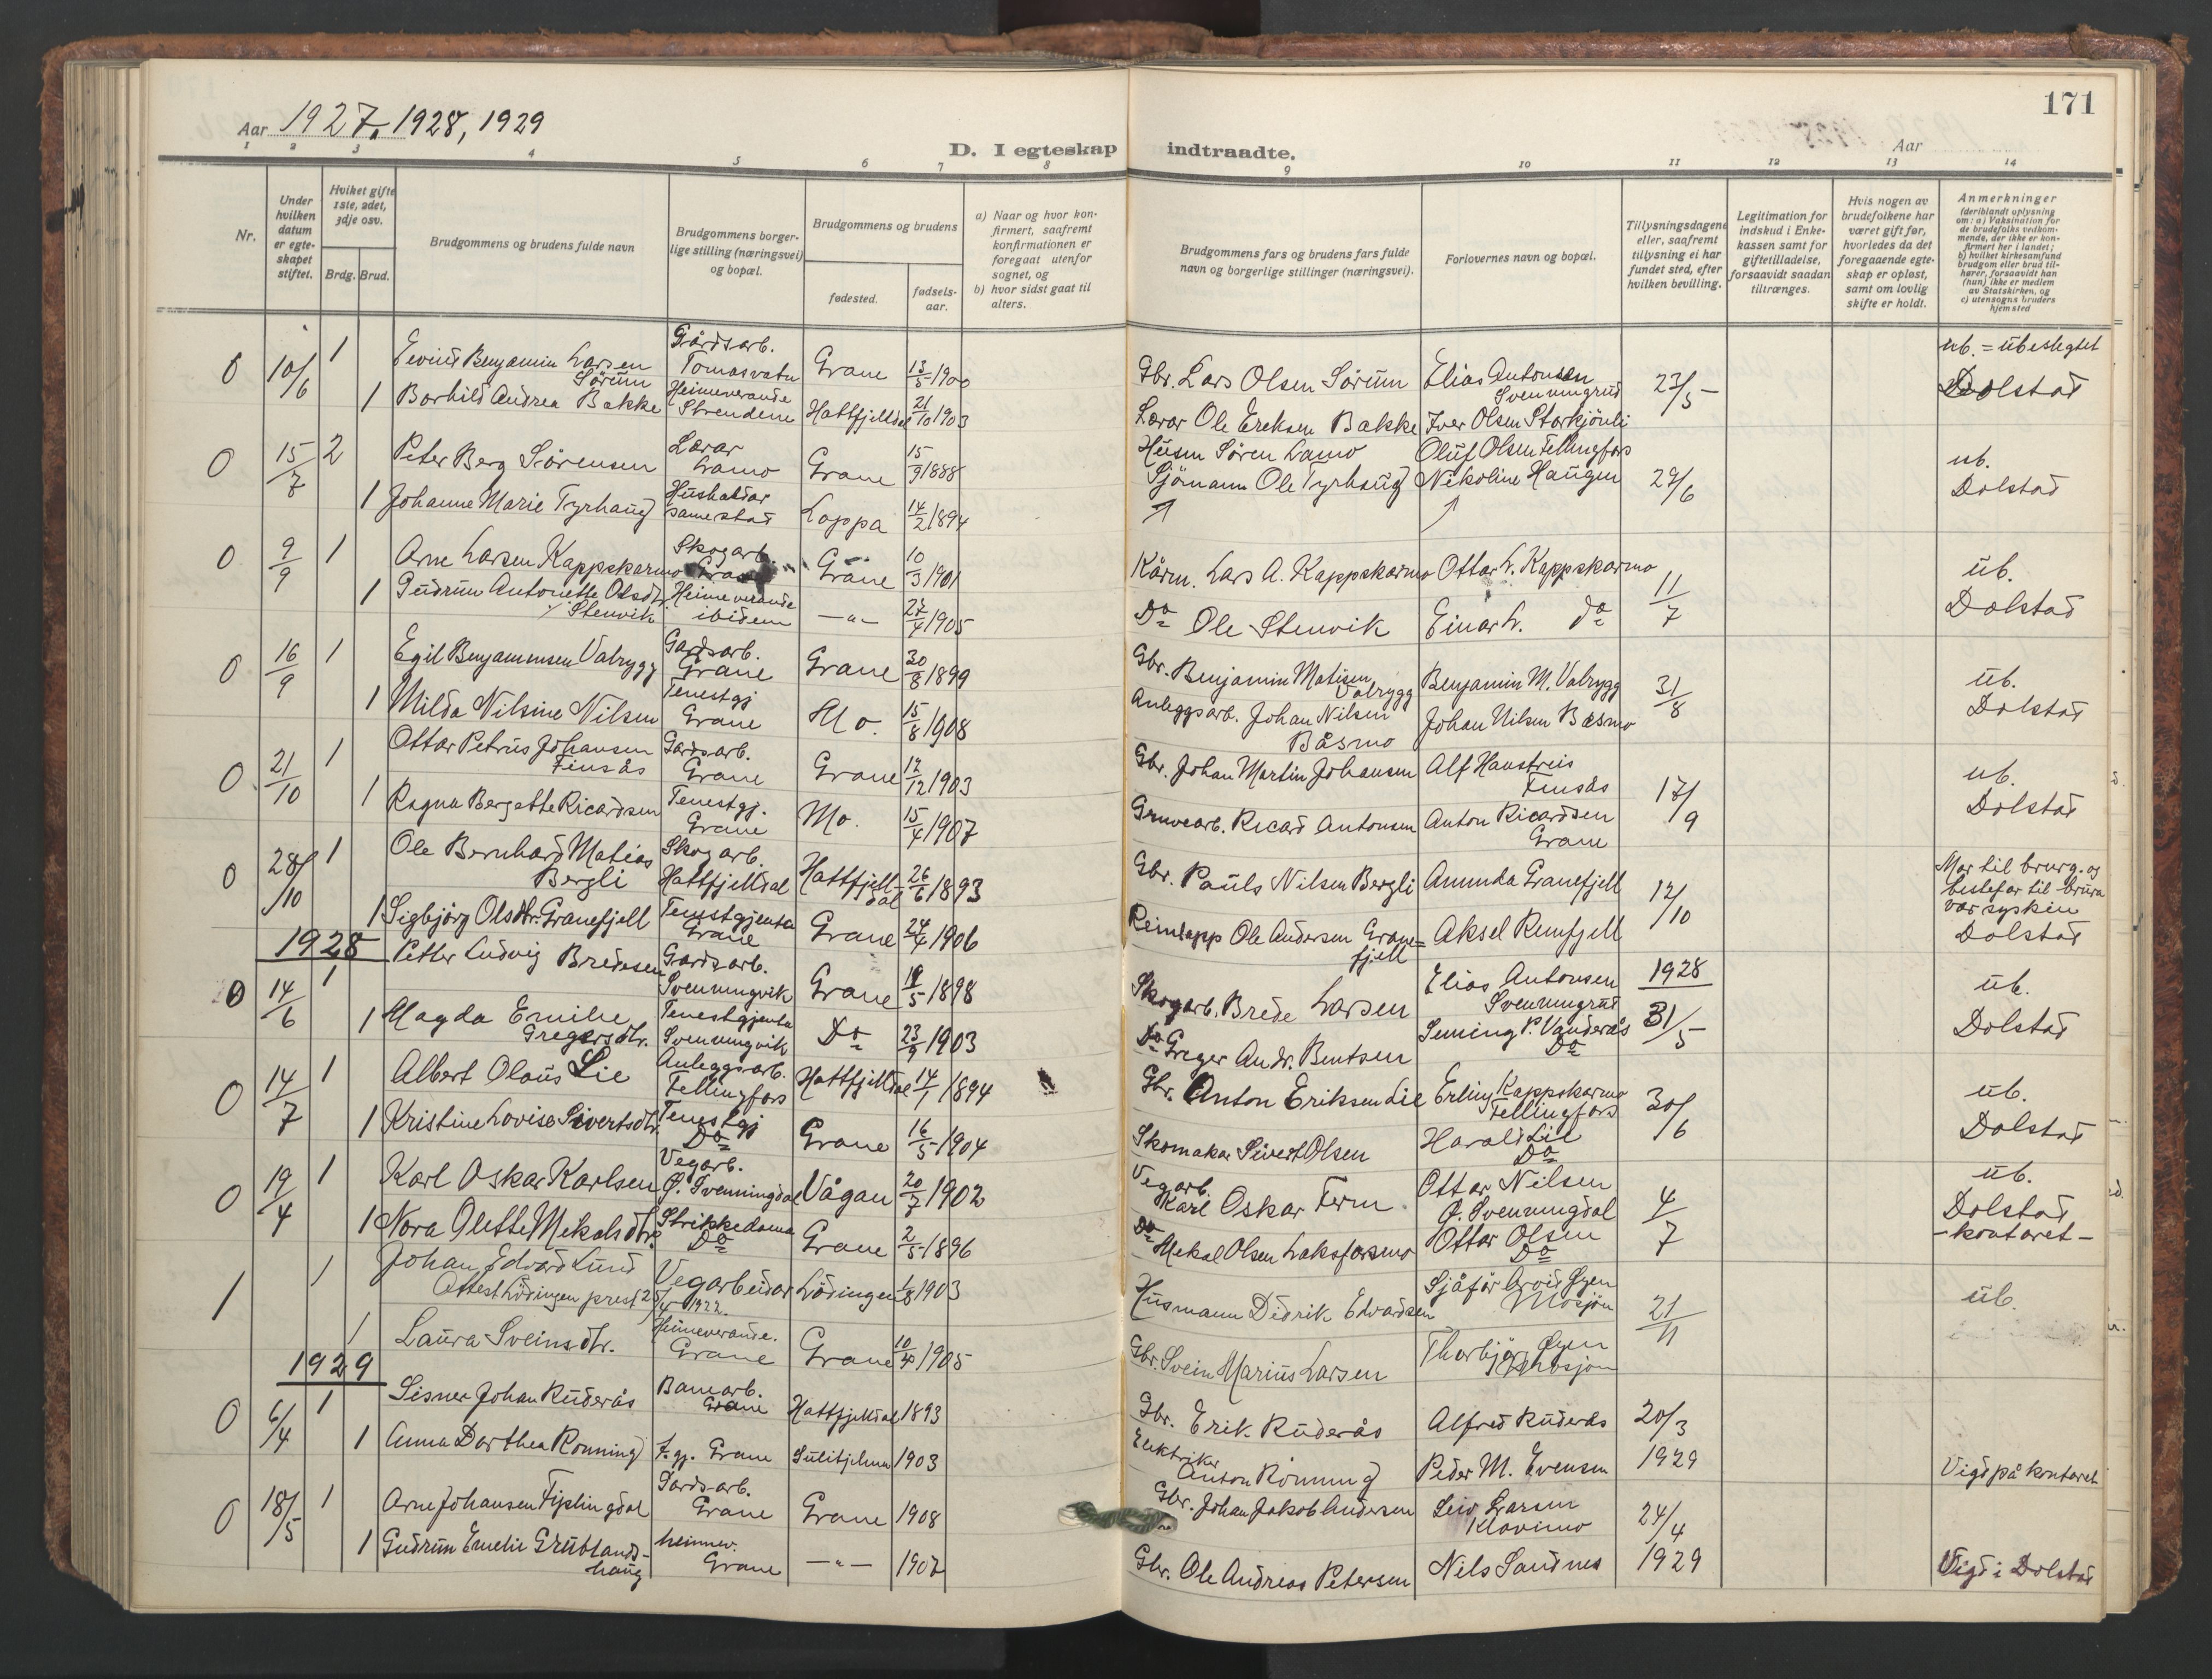 171
Aar 1927, 1928, 1929
D. I egteskap indtraadte.
Aar
1 2 3 4 5 6 7 8 9 10 11 12 13 14
Nr.
Under hvilken datum er egte-skapet stiftet.
Hviket gifte 1ste, 2det, 3dje osv.
Brdg. Brud.
Brudgommens og brudens fulde navn
Brudgommens borger-lige stilling (næringsvei) og bopæl.
Brudgommens og brudens
fødested.
fødsels-aar.
a) Naar og hvor kon-firmert, saafremt konfirmationen er foregaat utenfor sognet, og
b) hvor sidst gaat til alters.
Brudgommens fars og brudens fars fulde navn og borgerlige stillinger (næringsvei).
Forlovernes navn og bopæl.
Tillysningsdagene eller, saafremt tillysning ei har fundet sted, efter hvilken bevilling.
Legitimation for indskud i Enke-kassen samt for giftetilladelse, forsaavidt saadan tiltrænges.
Hvis nogen av brudefolkene har været gift før, hvorledes da det foregaaende egte-skap er opløst, samt om lovlig skifte er holdt.
Anmerkninger
(deriblandt oplysning om: a) Vaksination for de brudefolks vedkom-mende, der ikke er kon-firmert her i landet; b) hvilket kirkesamfund brudgom eller brud til-hører, forsaavidt han (hun) ikke er medlem av Statskirken, og c) utensogns bruders hjemsted
0 10/6 1 Eevind Benjamin Larsen Sörum Gårdsarb. Tomasvatn Grane 13/5 1900 Gbr. Lars Olsen Sörum Elias Antonsen Svenningrud 23/5 ub. = übeslegtet Dolstad
1 Borhild Andrea Bakke Heimeverande Strendene Hattfjelldal 21/10 1903 Lærar Ole Ereksen Bakke Iver Olsen Storkjönli
0 15/7 2 Peter Berg Sörensen Lærar Lamo Grane 15/9 1888 Husm Sören Lamo Oluf Olsen Fellingfors 29/6 ub. Dolstad
1 Johanne Marie Tyrhaug Hushaldar samestad Loppa 14/2 1894 Sjömann Ole Tyrhaug Nikoline Haugen
0 9/9 1 Arne Larsen Kappskarmo Skogarb. Grane Grane 10/3 1901 Kårm. Lars A. Kappskarmo Ottar L. Kappskarmo 11/7 ub. Dolstad
1 Gudrun Antonette Olsdtr Stenvik Heimeverande ibidem —"— 27/4 1905 Do Ole Stenvik Einar L. do
0 16/9 1 Egil Benjaminsen Valrygg Gardsarb. Grane Grane 30/8 1899 Gbr. Benjamin Matisen Valrygg Benjamin M. Valrygg 31/8 ub. Dolstad
1 Milda Nilsine Nilsen Tenestgj Grane Mo. 15/8 1908 Anleggsarb. Johan Nilsen Båsmo Johan Nilsen Båsmo
0 21/10 1 Ottar Petrus Johansen Finsås Gardsarb. Grane Grane 12/12 1903 Gbr. Johan Martin Johansen Alf Haustreis Finsås 17/9 ub. Dolstad
1 Ragna Bergette Ricardsen Tenestgj. Grane Mo. 15/4 1907 Gruvearb. Ricard Antonsen Anton Ricardsen Grane
0 28/10 1 Ole Bernhard Matias Bergli Skogarb. Hattfjelldal Hattfjelldal 26/6 1893 Gbr. Pauls Nilsen Bergli Amunda Granefjell 12/10 Mor til brurg. og bestefar til brura var syskin Dolstad
1 Sigbjörg Olsdtr. Granefjell Tenestgjenta Grane Grane 24/4 1906 Reinlapp Ole Andersen Grane=fjell Aksel Renfjell
1928
0 14/6 1 Petter Ludvig Bredesen Gardsarb. Svenningvik Grane 19/5 1898 Skogarb. Brede Larsen Elias Antonsen Svenningrud 1928 31/5 ub. Dolstad
1 Magda Emilie Gregersdtr. Tenestgjenta Svenningvik Do 23/9 1903 Do Greger Andr. Bentsen Do
0 14/7 1 Albert Olaus Lie Anleggsarb. Fellingfors Hattfjelldal 14/1 1894 Gbr. Anton Eriksen Lie Erling Kappskarmo Fellingfors 30/6 ub. Dolstad
1 Kristine Lovise Sivertsdtr. Tenestgj Do Grane 16/5 1904 Skomakar Sivert Olsen Harald Lie Do
0 19/4 1 Karl Oskar Karlsen Vegarb. Ø. Svenningdal Vågan 20/7 1902 Vegarb. Karl Oskar Ferm Ottar Nilsen Ø. Svenningdal 4/7 ub. Dolstad -kontoret-
1 Nora Olette Mekalsdtr. Strikkedama Do Grane 2/5 1896 Do Mekal Olsen Laksforsmo Ottar Olsen Do
1 1 Johan Edvard Lund Attest Lödingen prest 25/4 1922. Vegarbeidar Lödingen 1/8 1903 Husmann Didrik Edvardsen Sjåfør Arvid Øyen Mosjöen 21/11 ub.
1 Laura Sveinsdtr. Heimeverande. Grane Grane 10/4 1905 Gbr. Svein Marius Larsen Thorbjørg Øyen Mosjoen
1929
0 6/4 1 Sisner Johan Ruderås Banearb. Grane Hattfjelldal 1893 Gbr. Erik Ruderås Alfred Ruderås 20/3 1929 Vigd på kontoret
1 Anna Dorthea Rönning t.gj. Grane Sulitjelma 1903 Elektriker Anton Rönning Peder M. Evensen
0 18/5 1 Arne Johansen Fiplingdal Gardsarb. Grane Grane 1908 Gbr. Johan Jakob Andersen Leiv Larsen Klovimo 24/4 1929 Vigd i Dolstad
1 Gudrun Emelie Grublands-haug heimev. Grane —"— 1907 Gbr. Ole Andreas Petersen Nils Sandnes